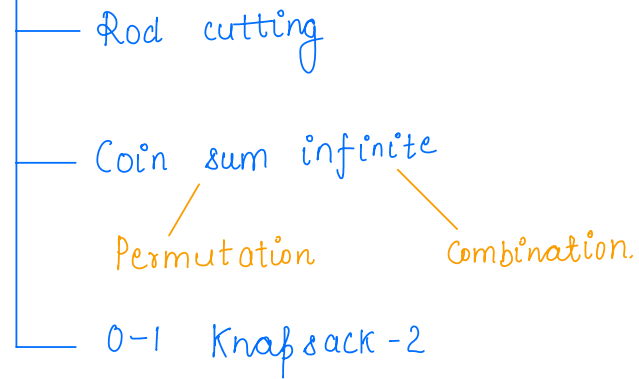 Rod cutting
Coin sum infinite
Permutation Combination.
0-1 Knapsack-2